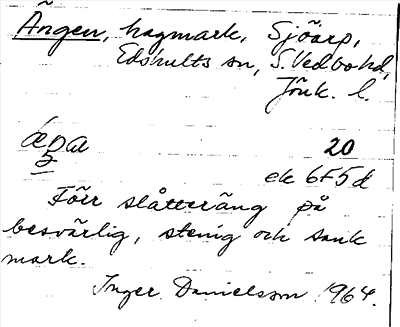 Ängen, hagmark, Sjöarp,
Edshults sn, S. Vedbo hd,
Jönk. l.
20
ek 6F5d
Förr slåtteräng på
besvärlig, stenig och sank
mark.
Inger Danielsson 1964.